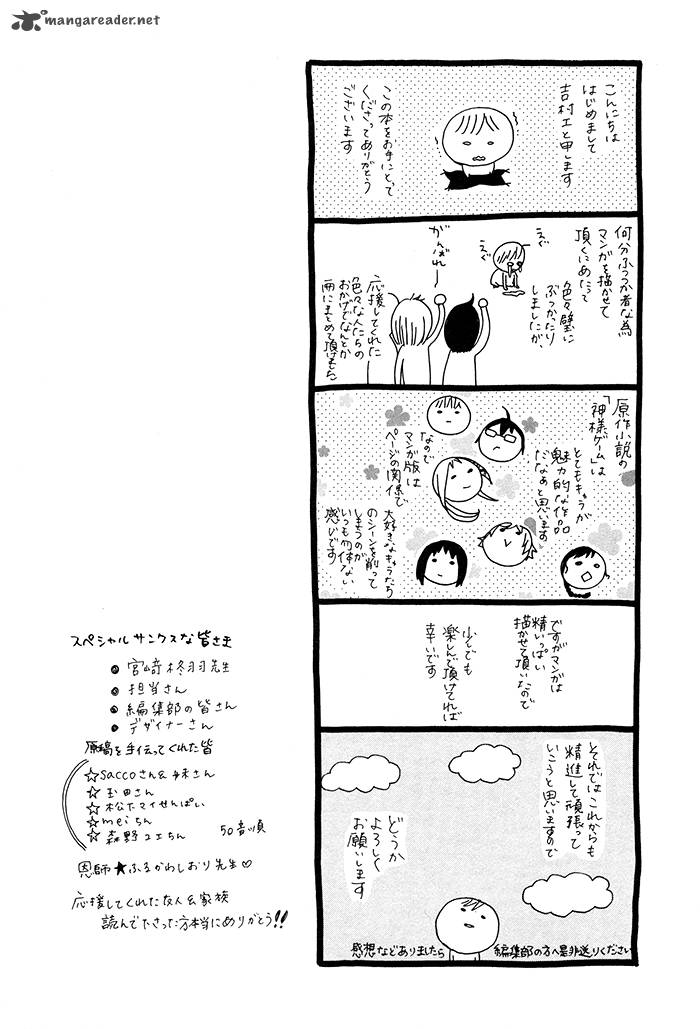 mangareader.net
こんにちは
はじめまして
吉村エと申します
この本をお手にとって
くださってありがとう
ございます
何分ふつつか者な為
マンガを描かせて
頂くにあたって
色々壁に
ぶつかったり
しましたが、
えぐ
えぐ
がんばれー
応援してくれた
色々な人たちの
おかげでなんとか
冊にまとめて頂けました
原作小説の
「神様ゲーム」は
とてもキャラが
魅力的な作品
だなぁと思います
なので
マンガ版は
ページの関係で
大好きなキャラたち
のシーンを削って
しまうのが
いつも勿体ない
感じです
ですがマンガは
精いっぱい
描かせて頂いたので
少しでも
楽しんで頂けてれば
幸いです
それではこれからも
精進して頑張って
いこうと思いますので
どうか
よろしく
お願いします
感想などありましたら
編集部の方へ是非送りください
スペシャルサンクスな皆さま
● 宮﨑柊羽先生
● 担当さん
● 編集部の皆さん
● デザイナーさん
原稿を手伝ってくれた皆
☆saccoさん&妹さん
☆玉田さん
☆松下マイせんぱい
☆meiちん
☆森野ユエちん
50音順
恩師★ふるかわしおり先生♡
応援してくれた友人&家族
読んで下さった方本当にありがとう!!